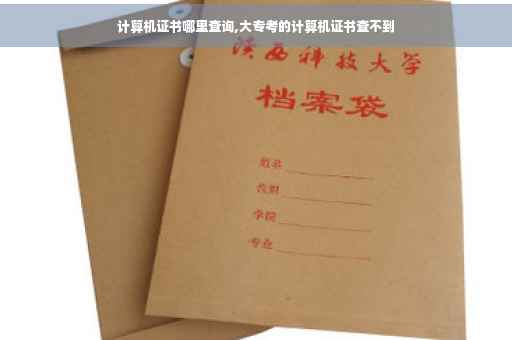 计算机证书哪里查询,大专考的计算机证书查不到
陕西科技大学
档案袋
姓名
学院
专业